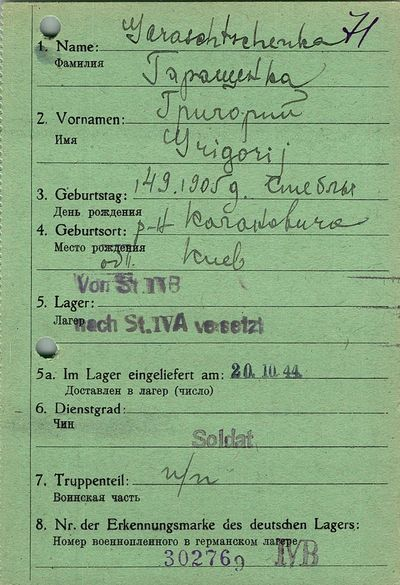 1. Name: Garaschtschenka
Фамилия Гаращенка
2. Vornamen: Григорий
Имя Grigorij
3. Geburtstag: 14.9.1905 д. Стеблы
День рождения
4. Geburtsort: р-н Кагановича
Место рождения
обл. Киев
Von St. IVB
5. Lager:
Лагерь nach St. IVA versetzt
5a. Im Lager eingeliefert am: 20.10.44.
Доставлен в лагер (число)
6. Dienstgrad:
Чин
Soldat
7. Truppenteil: п/п
Воинская часть
8. Nr. der Erkennungsmarke des deutschen Lagers:
Номер военнопленного в германском лагере
302769 IVB